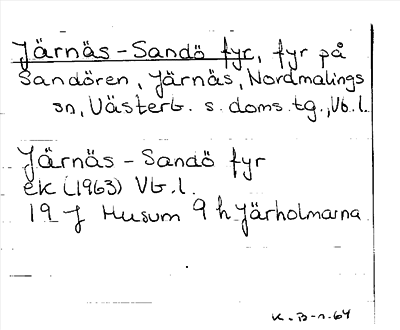 Järnäs-Sandö fyr, fyr på
Sandören, Järnäs, Nordmalings
sn, Västerb. s. doms. tg., Vb. l.
Järnäs-Sandö fyr
ek (1963) Vb. l.
19 J Husum 9 h Järholmarna
K. B-n. 64